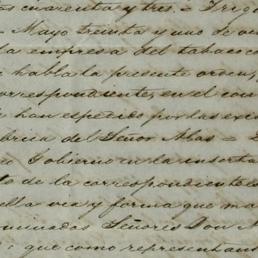 os cuarenta y tres. = Briga
- Mayo treinta y uno de oc
la empresa del tabaco co
e habla la presente orden,
orrespondiente, en el con
e han espedido por las exis
brica del Señor Alas =
u Gobierno en la inserta
to de la correspondiente e
ella vea y forma que ma
minados Señores Don A
o que como representan